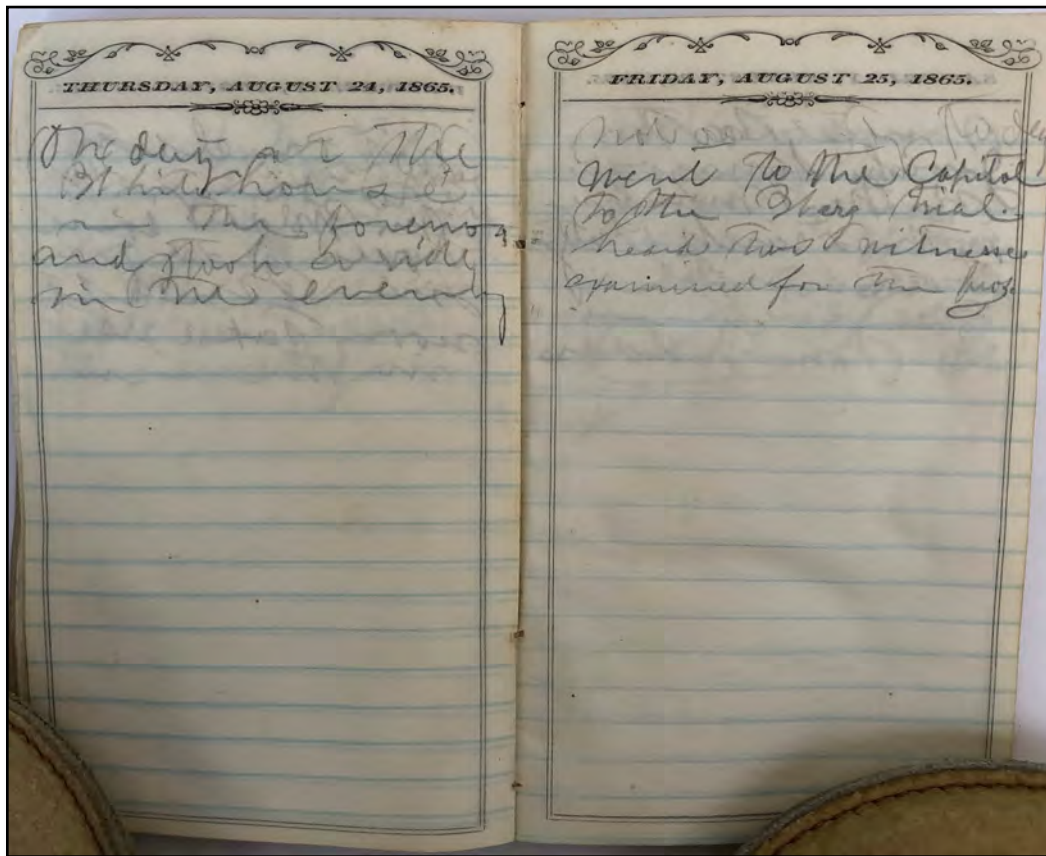 THURSDAY, AUGUST 24, 1865.
On duty at the
White house
this forenoon
and took a ride
in the evening
FRIDAY, AUGUST 25, 1865.
Not on
went to the Capitol
to the trial.
heard two witnesse
examined for the pros.